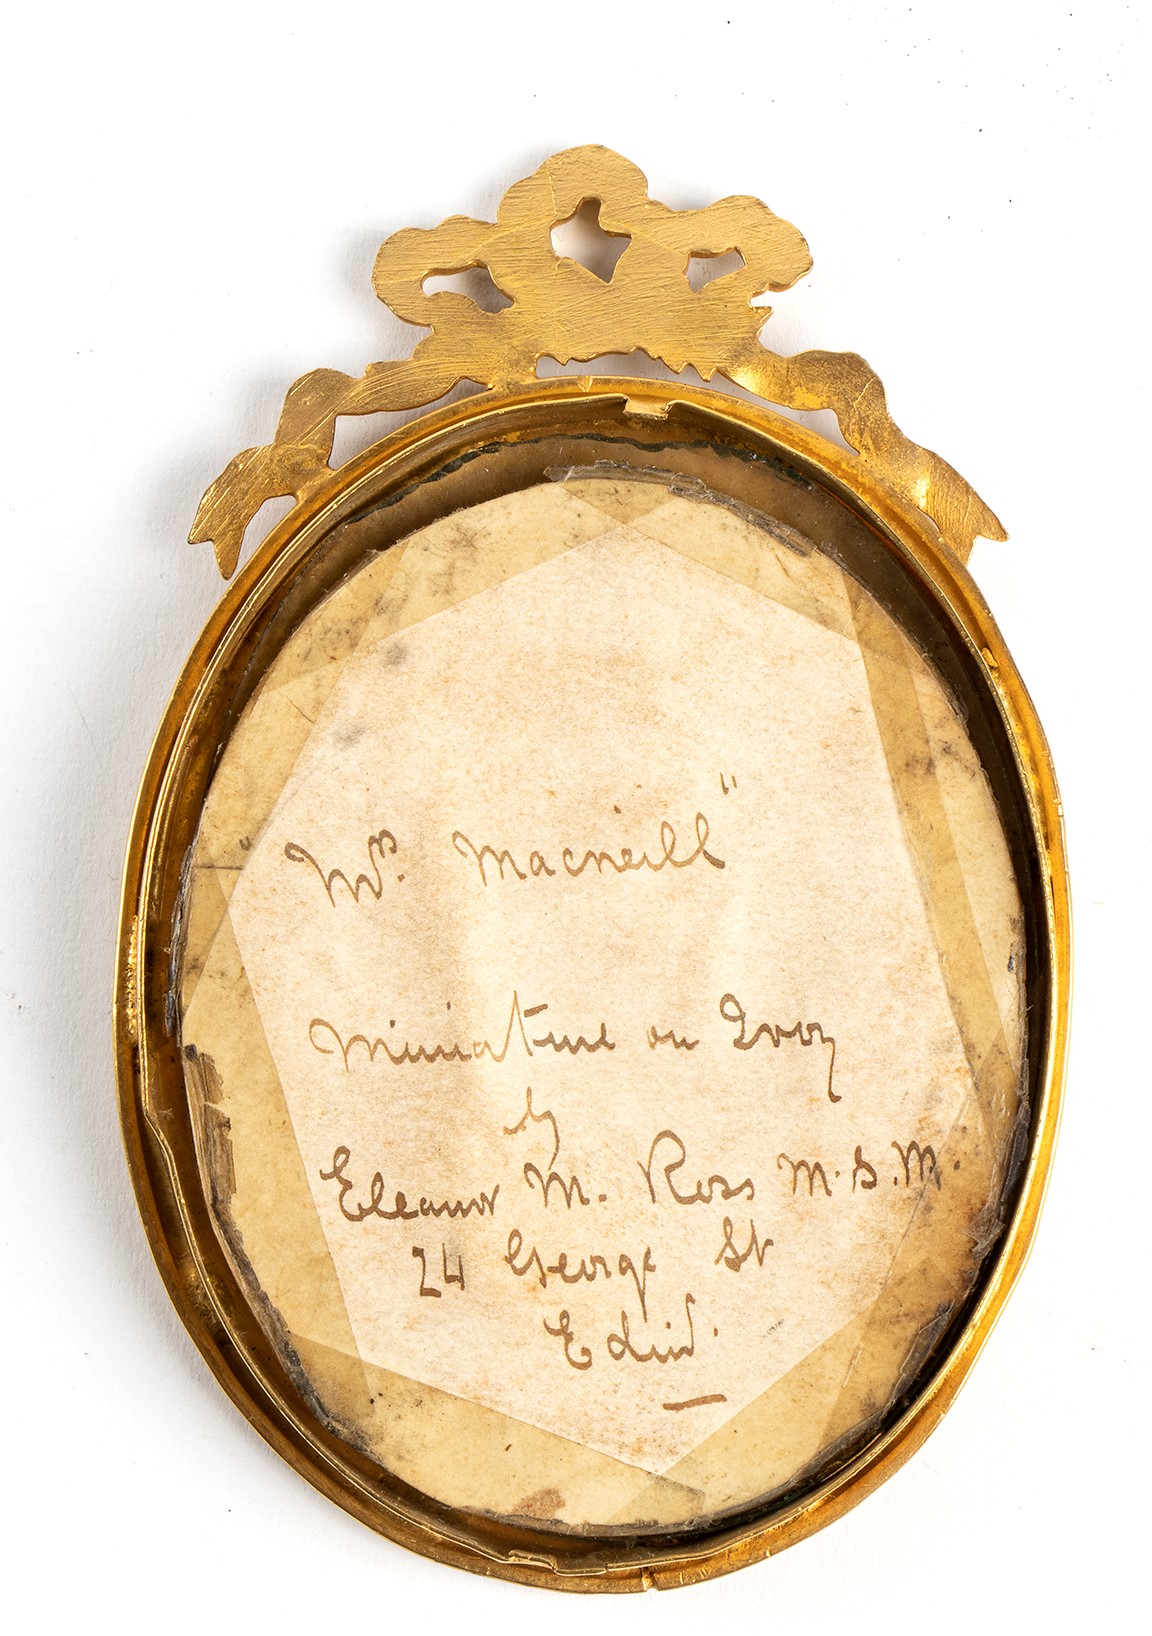 "Mrs. Macneill"
Miniature on Ivory
by
Eleanor M. Ross M.S.M.
24 George St
Edinr.